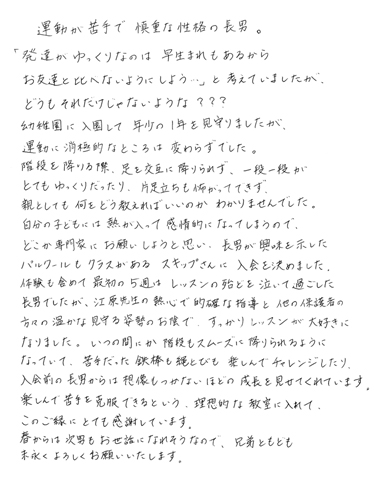 運動が苦手で 慎重な性格の長男。
「発達がゆっくりなのは 早生まれもあるから
お友達と比べないようにしよう…」と考えていましたが、
どうもそれだけじゃないような???
幼稚園に入園して 年少の1年を見守りましたが、
運動に消極的なところは 変わらずでした。
階段を降りる際、足を交互に降りられず、一段一段が
とてもゆっくりだったり、片足立ちも怖がってできず。
親としても 何をどう教えればいいのか わかりませんでした。
自分の子どもには 熱が入って 感情的になってしまうので、
どこか専門家に お願いしようと思い、長男が興味を示した
パルクールもクラスがある スキップさんに 入会を決めました。
体験も含めて 最初の5週は レッスンの殆どを 泣いて過ごした
長男でしたが、江原先生の 熱心で的確な指導と 他の保護者の
方々の 温かな見守る姿勢のお陰で、すっかりレッスンが 大好きに
なりました。いつの間にか 階段もスムーズに降りられるように
なっていて、苦手だった 鉄棒も縄とびも 楽しんでチャレンジしたり、
入会前の長男からは 想像もつかないほどの 成長を見せてくれています。
楽しんで苦手を克服できるという、理想的な教室に入れて、
このご縁に とても感謝しています。
春からは次男も お世話になれそうなので、兄弟ともども
末永くよろしくお願いいたします。